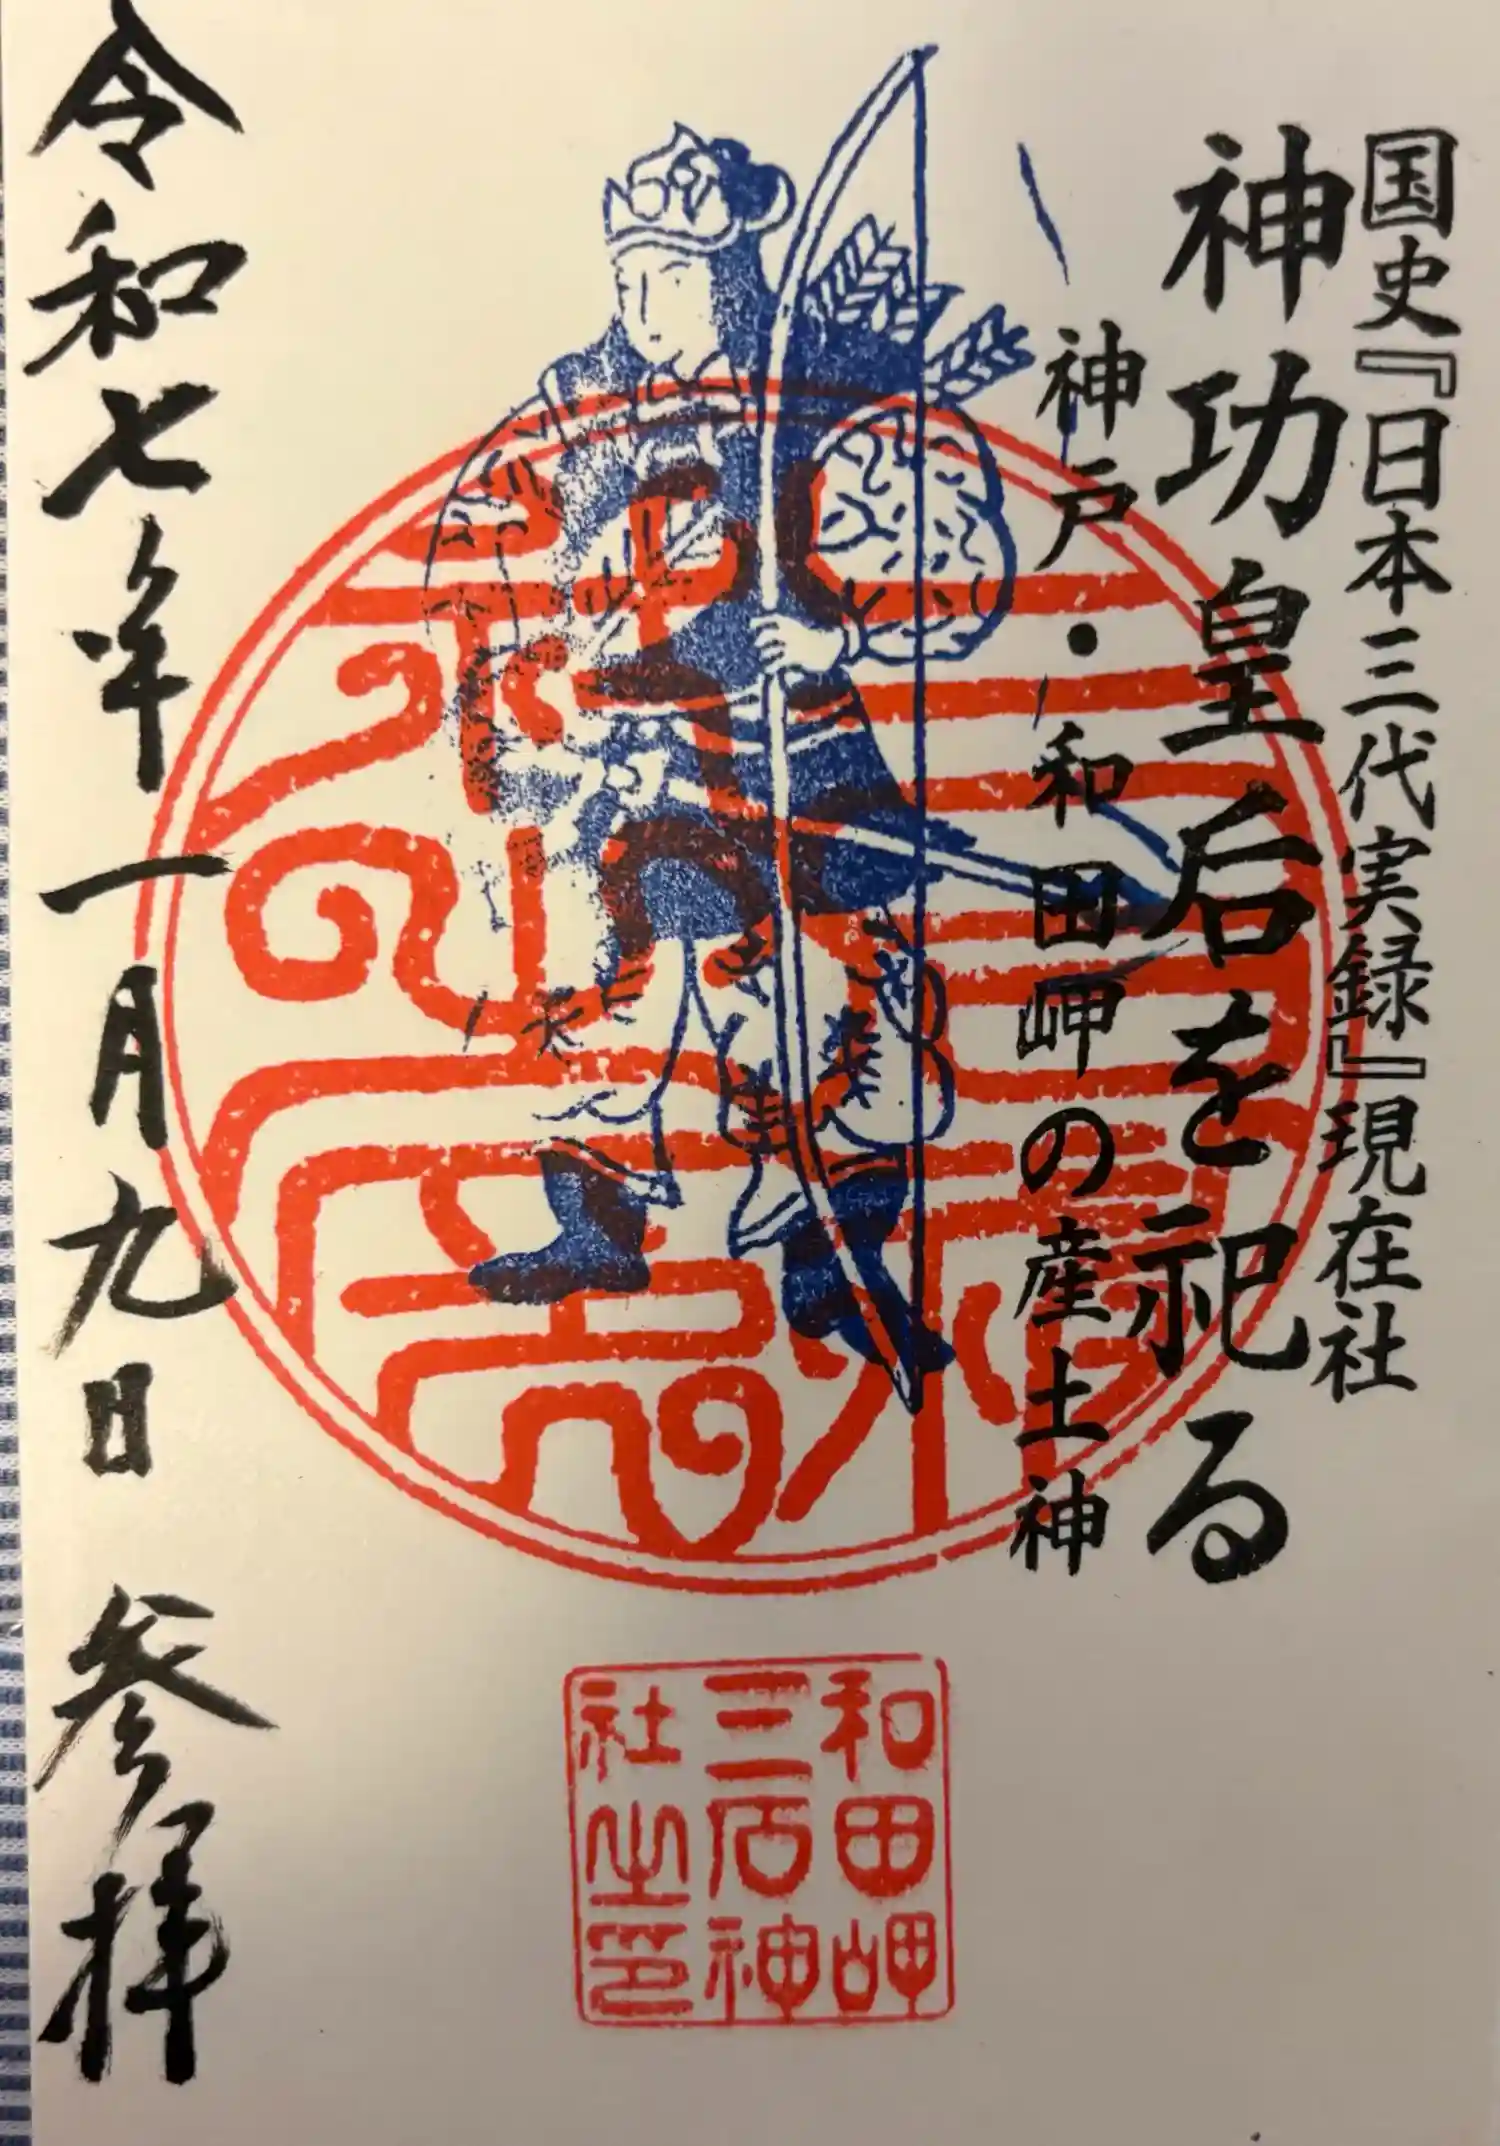 国史『日本三代実録』現在社
神功皇后を祀る
神戸・和田岬の産土神
和田岬
三石神
社之印
令和七年一月九日 参拝